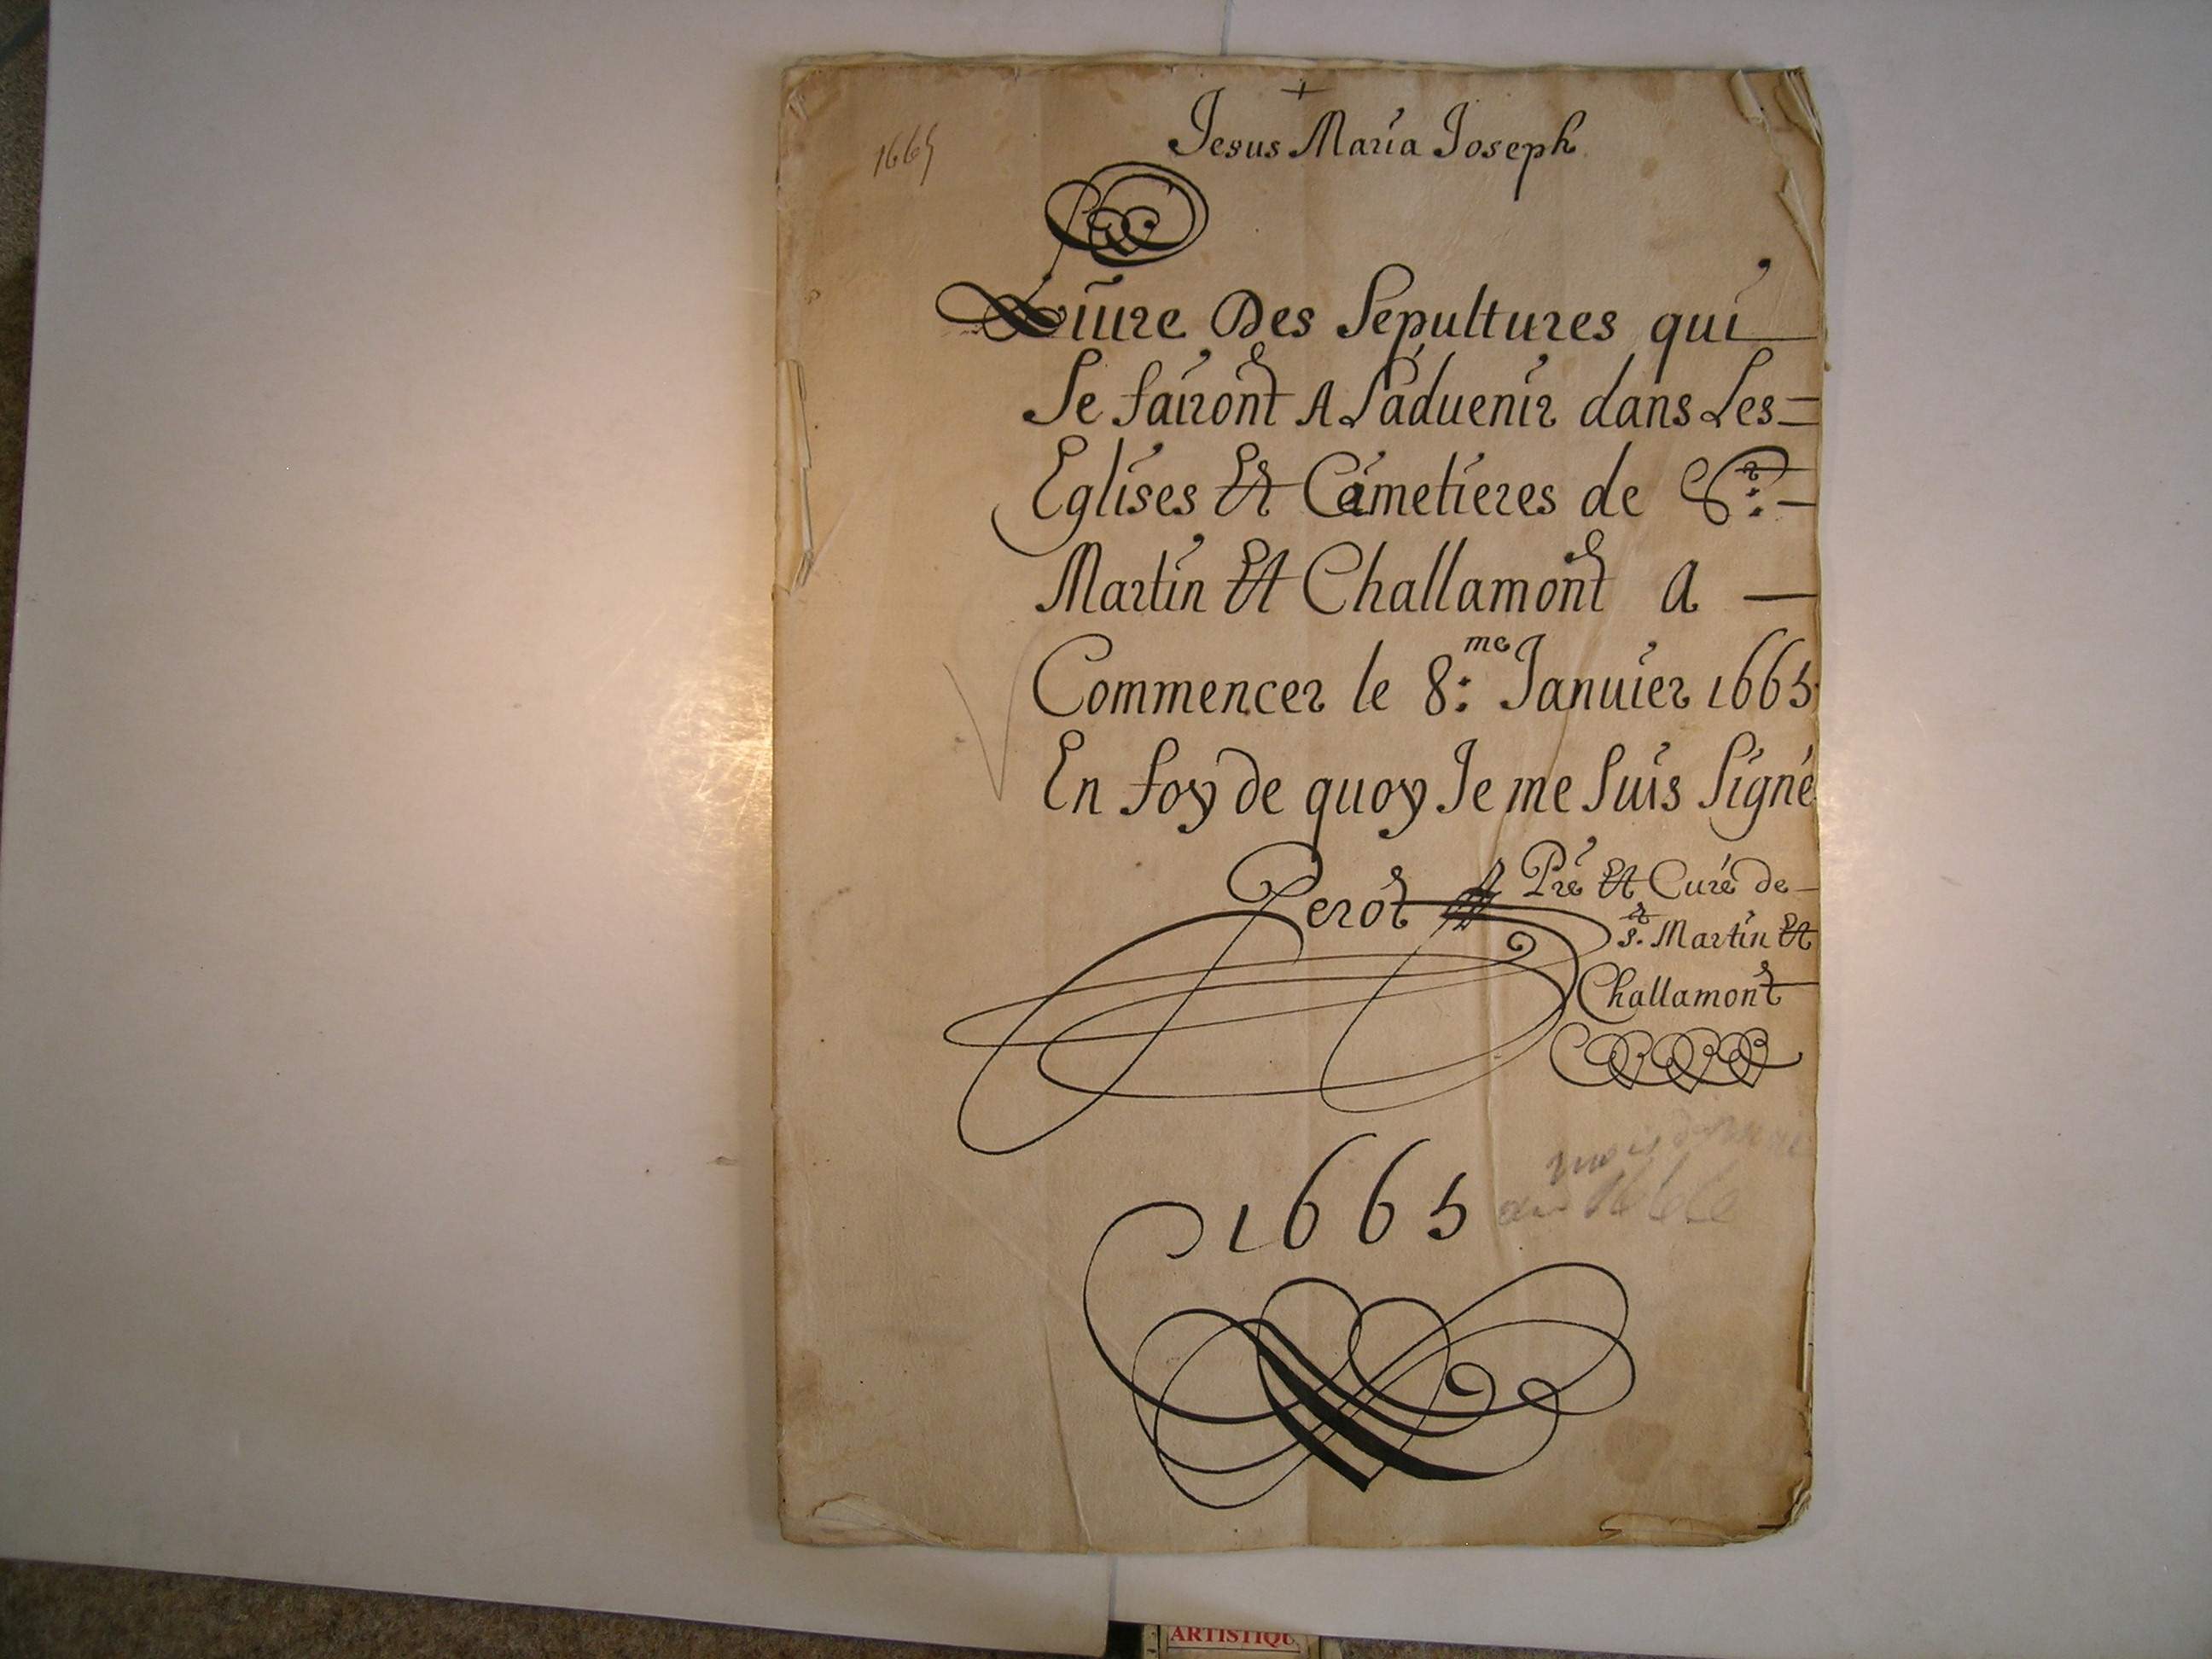 +
Jesus Maria Joseph
1665
Liure Des Sepultures qui
Se fairont A L'aduenir dans Les=
Eglises Et Cimetieres de St. -
Martin Et Challamont a —
Commencer le 8:me Januier 1665
En foy de quoy Je me suis signé
Perot Pre Et Curé de -
St. Martin Et
Challamont
1665
ARTISTIQU